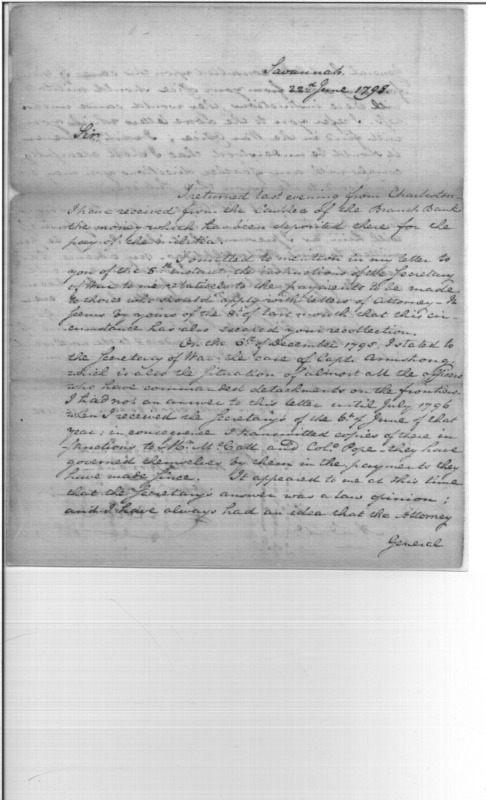 Savannah
22nd June 1798.
Sir,
I returned last evening from Charleston
I have received from the Cashier of the Branch Bank
the money which has been deposited there for the
pay of the militia.
I omitted to mention in my letter to
you of the 8th instant the instructions of the Secretary
of War to me relative to the payments to be made
to those who should apply with letters of Attorney - It
seems by yours of the 8th of last month that this cir-
cumstance has also escaped your recollection.
On the 6th of December 1795 I stated to
the Secretary of War the case of Capt. Armstrong,
which is also the situation of almost all the officers
who have commanded detachments on the frontiers.
I had not an answer to this letter until July 1796
when I received the Secretary's of the 6th of June of that
year; in consequence I transmitted copies of these in
structions to Mr. McCall and Colo. Pope - they have
governed themselves by them in the payments they
have made since. It appeared to me at this time
that the Secretary's answer was a law opinion;
and I have always had an idea that the Attorney
General